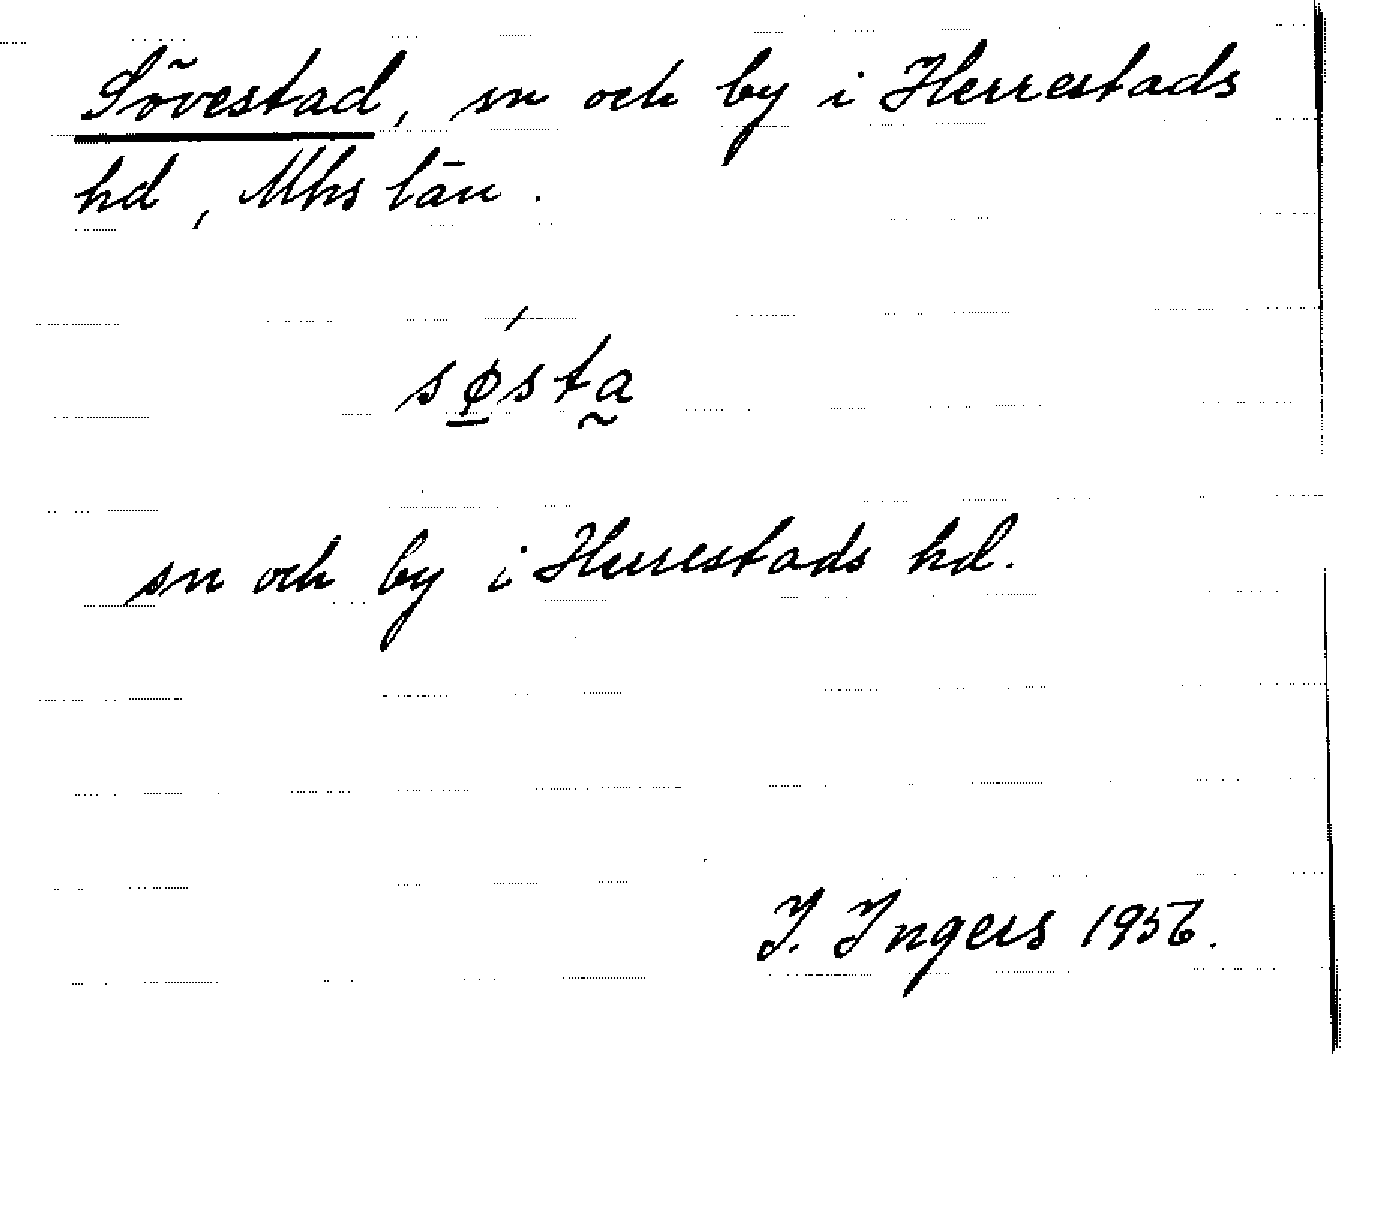 Sövestad, sn och by i Herrestads
hd, Mhs län.
sǿ̱sta̰
sn och by i Herrestads hd.
I. Ingers 1956.